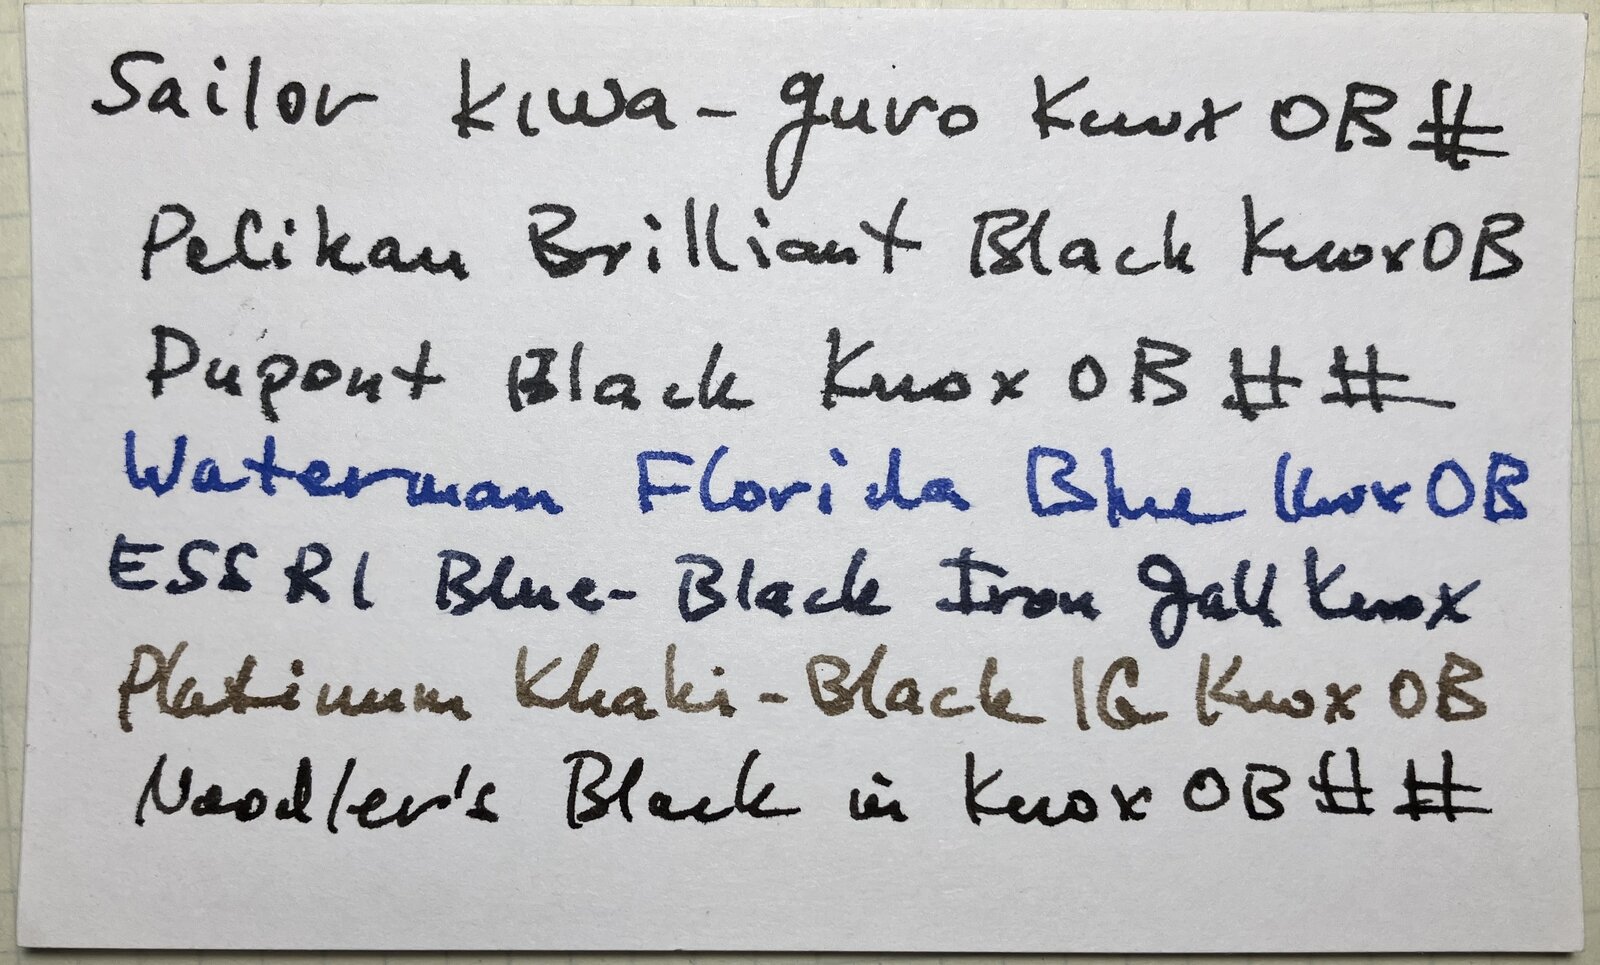 Sailor Kiwa-guro Knox OB #
Pelikan Brilliant Black Knox OB
Dupont Black Knox OB # #
Waterman Florida Blue Knox OB
ESSRI Blue-Black Iron Gall Knox
Platinum Khaki-Black IG Knox OB
Noodler's Black in Knox OB # #